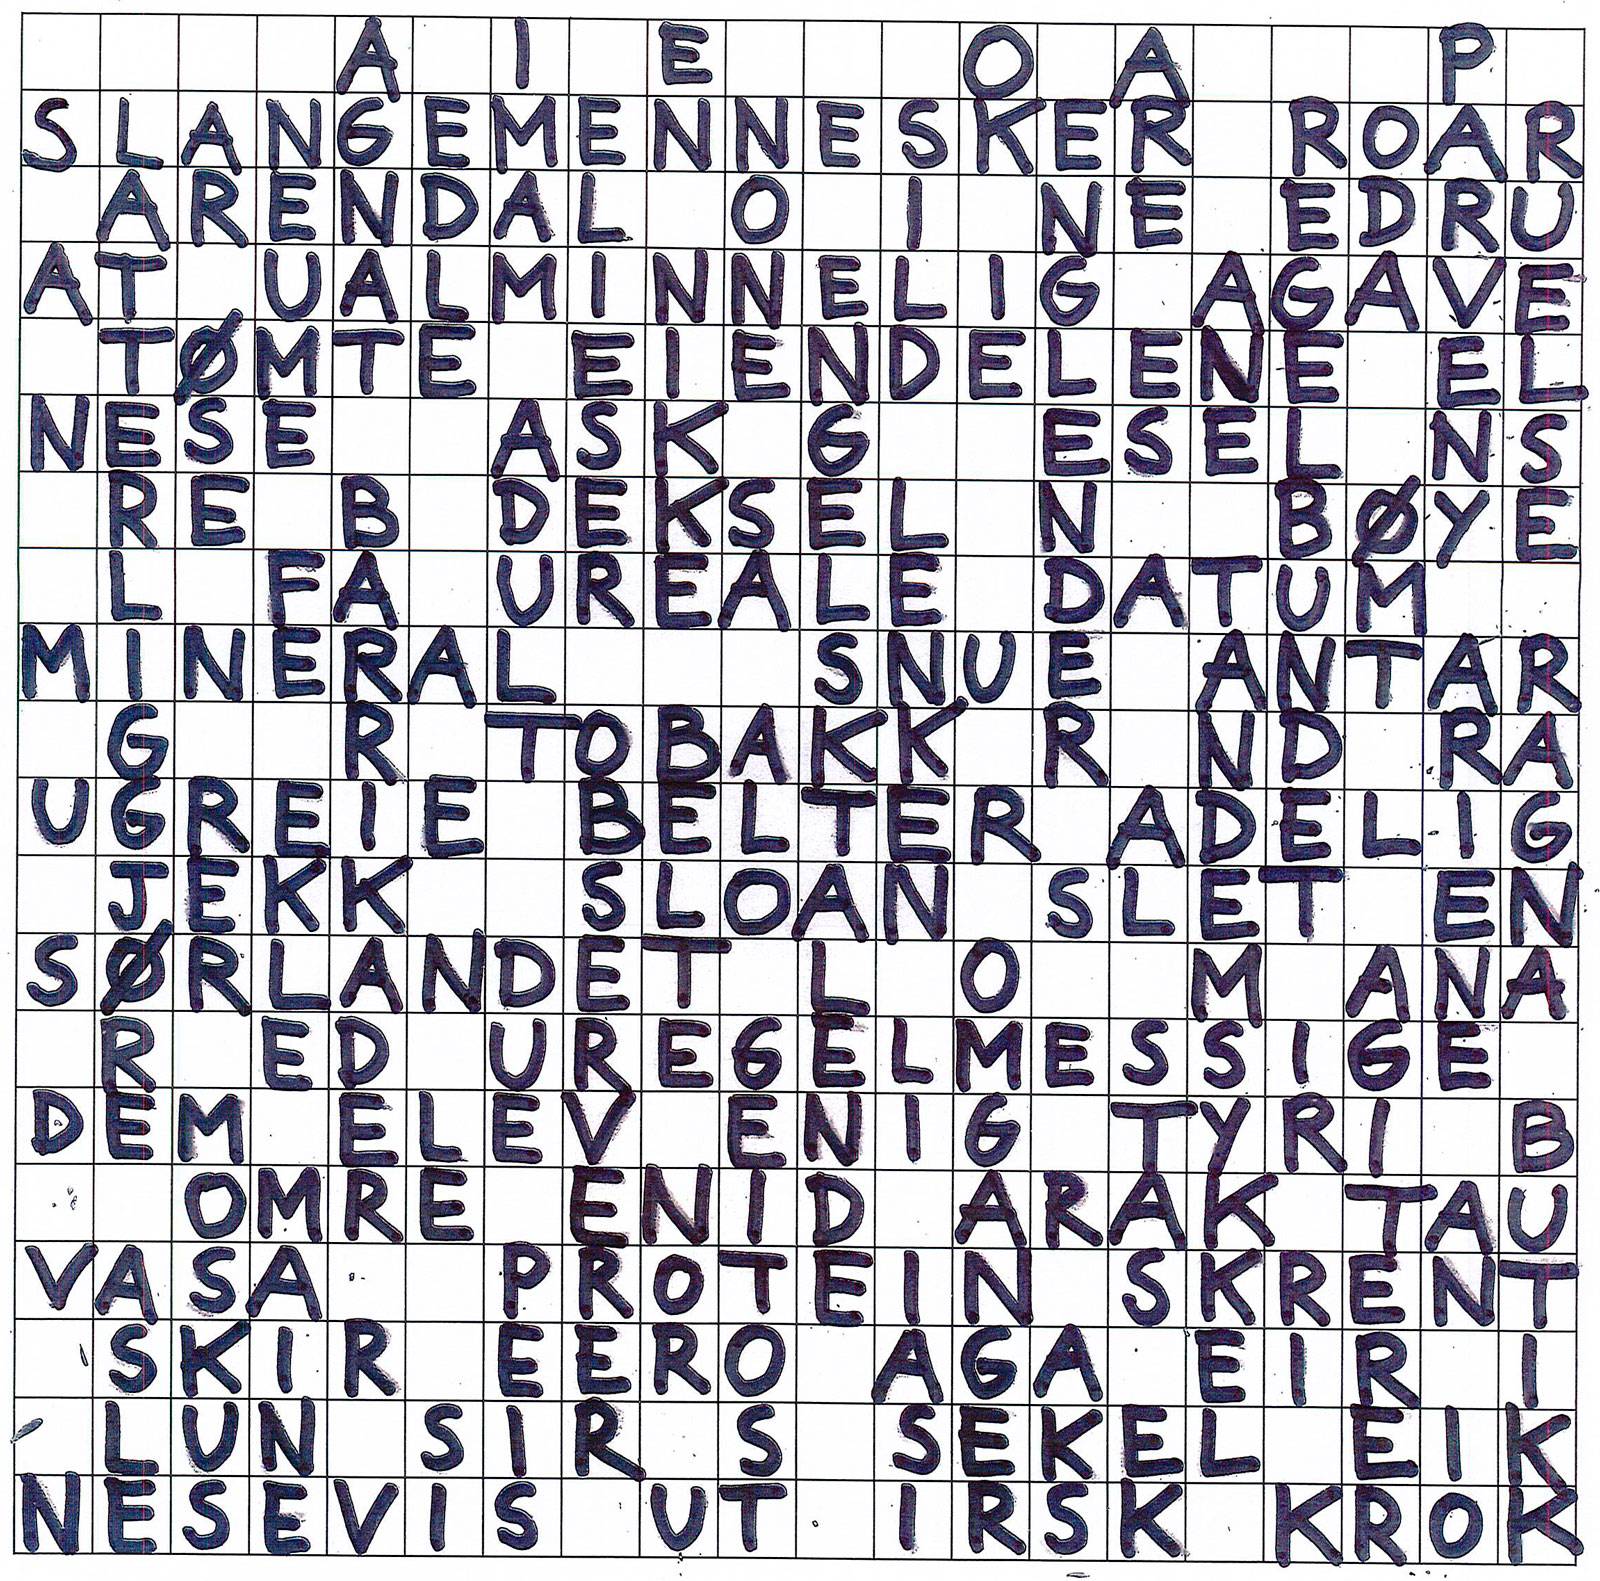 A I E O A P
SLANGEMENNESKER ROAR
ARENDAL O I NE EDRU
AT UALMINNELIG AGAVE
TØMTE EIENDELENE EL
NESE ASK G ESEL NS
RE B DEKSEL N BØYE
L FA UREALE DATUM
MINERAL SNUE ANTAR
G R TOBAKK R ND RA
UGREIE BELTER ADELIG
JEKK SLOAN SLET EN
SØRLANDET L O M ANA
R ED UREGELMESSIGE
DEM ELEV ENIG TYRI B
OMRE ENID ARAK TAU
VASA PROTEIN SKRENT
SKIR EERO AGA EIR I
LUN SIR S SEKEL EIK
NESEVIS UT IRSK KROK